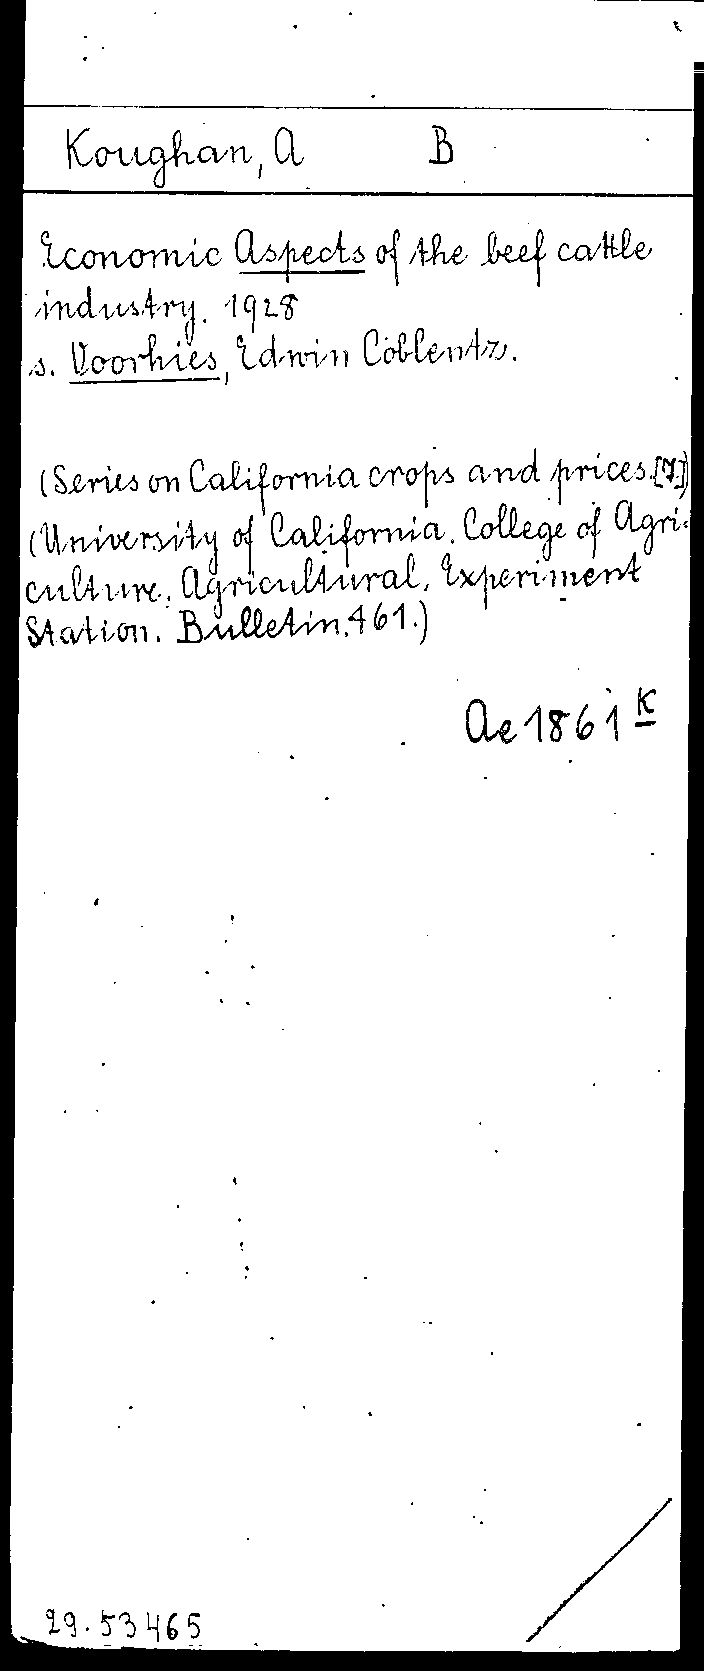 Koughan, A B
Economic Aspects of the beef cattle
industry. 1928
s. Voorhies, Edwin Coblentz.
(Series on California crops and prices.[7])
(University of California. College of Agri-
culture. Agricultural. Experiment
Station. Bulletin. 461.)
Ae 1861 K
29.53465